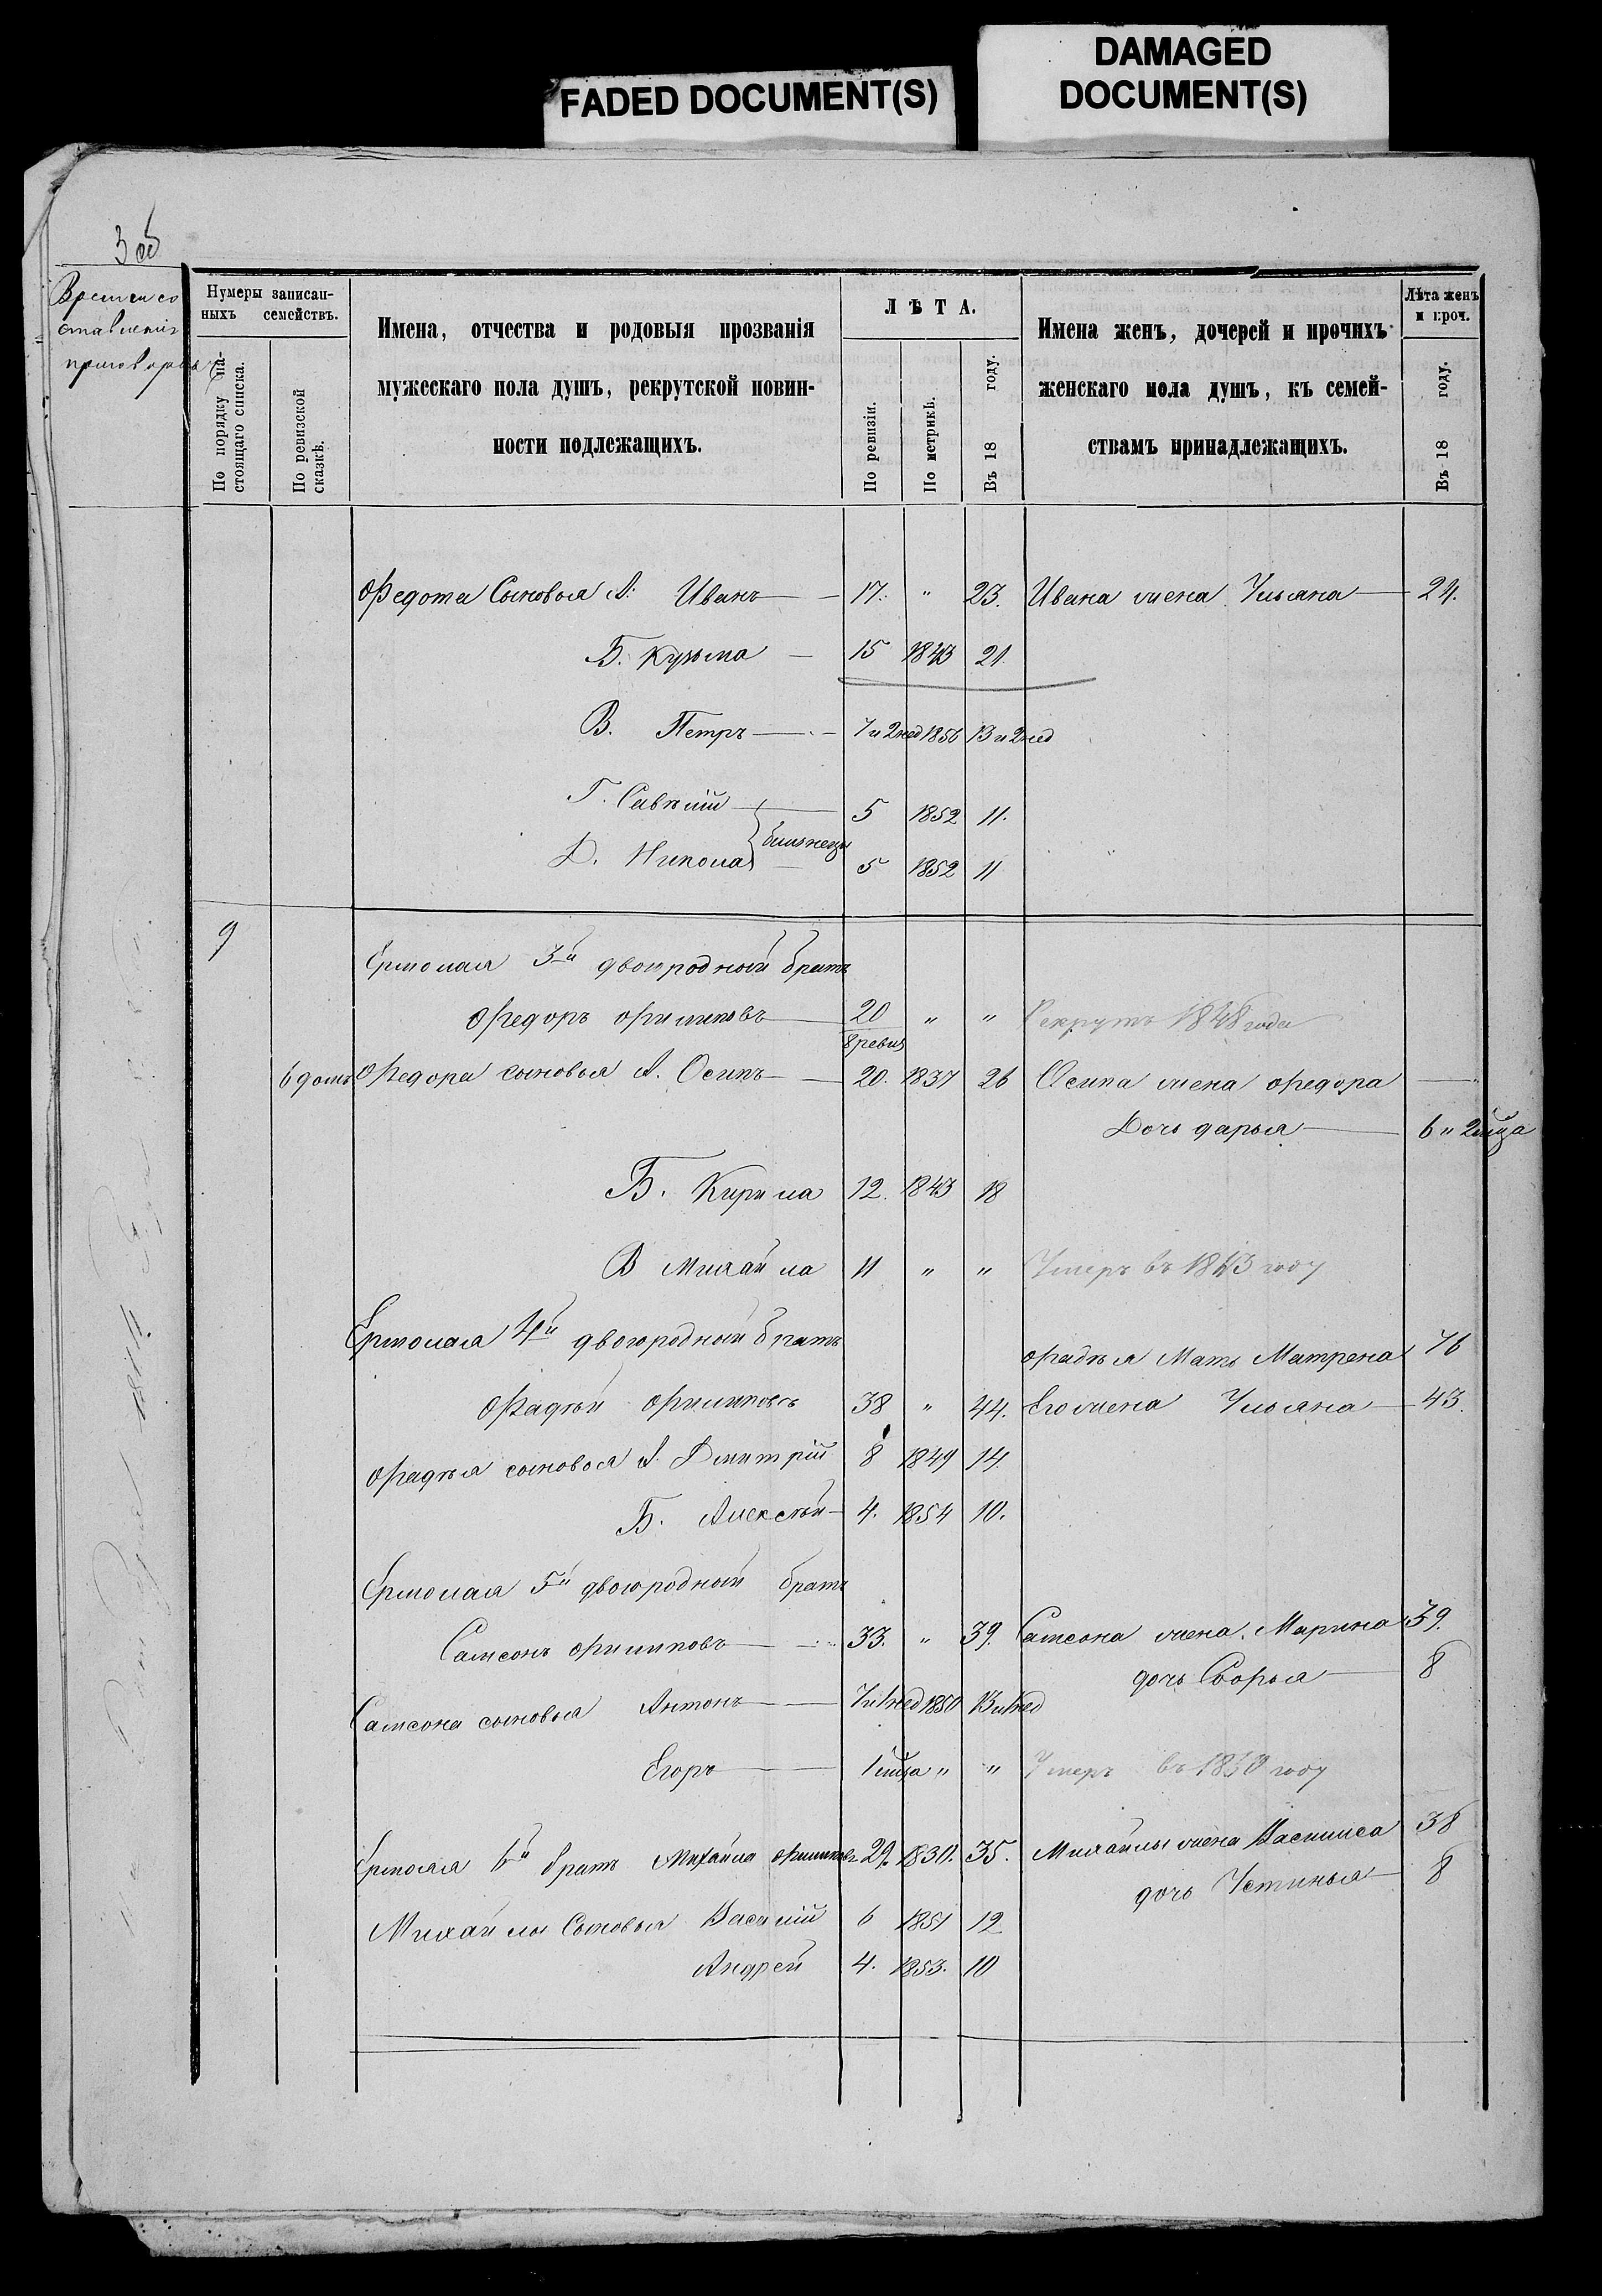 FADED DOCUMENT(S)
DAMAGED
DOCUMENT(S)
3 об
Время со
ставленія
приговора
Нумеры записан-
ныхъ семействъ.
По порядку на-
стоящаго списка.
По ревизской
сказкѣ.
Имена, отчества и родовыя прозванія
мужескаго пола душъ, рекрутской повин-
ности подлежащихъ.
ЛѢТА.
По ревизіи.
По метрикѣ.
Въ 18 году.
Имена женъ, дочерей и прочихъ
женскаго пола душъ, къ семей-
ствамъ принадлежащихъ.
Лѣта женъ
и проч.
Въ 18 году.
Федота Сыновья А. Иванъ 17. " 23. Ивана жена Ульяна 24.
Б. Кузьма 15 1843 21
В. Петръ 7 и 2 нед 1856 13 и 2 нед
Г. Савелій 5 1852 11.
близнецы
Д. Никола 5 1852 11
9
Ермолая 3й двоюродный братъ
Федоръ Филиповъ 20 " " Рекрутъ 1848 года
8 ревиз
6 домъ Федора сыновья А. Осипъ 20. 1837 26 Осипа жена Федора
Дочь Дарья 6 и 2 мца
Б. Кирила 12. 1843 18
В Михайла 11 " " Умеръ въ 1843 году
Ермолая 4й двоюродный братъ
Фадѣя Мать Матрена 76
Фадѣй Филиповъ 38 " 44. Его жена Ульяна 43.
Фадѣя сыновья А. Дмитрій 8 1849 14.
Б. Алексѣй 4. 1854 10.
Ермолая 5й двоюродный братъ
Самсонъ Филиповъ 33. " 39. Самсона жена Марина 39.
дочь 8
Самсона сыновья Антонъ 7 и 1 нед 1850 13 и 1 нед
Егоръ 1 мца " " Умеръ въ 1850 году
Ермолая 6й братъ Михайла Филиповъ 29. 1830. 35. Михайлы жена Василиса 38
дочь Устинья 8
Михайлы Сыновья Василій 6 1851 12
Андрей 4. 1853. 10